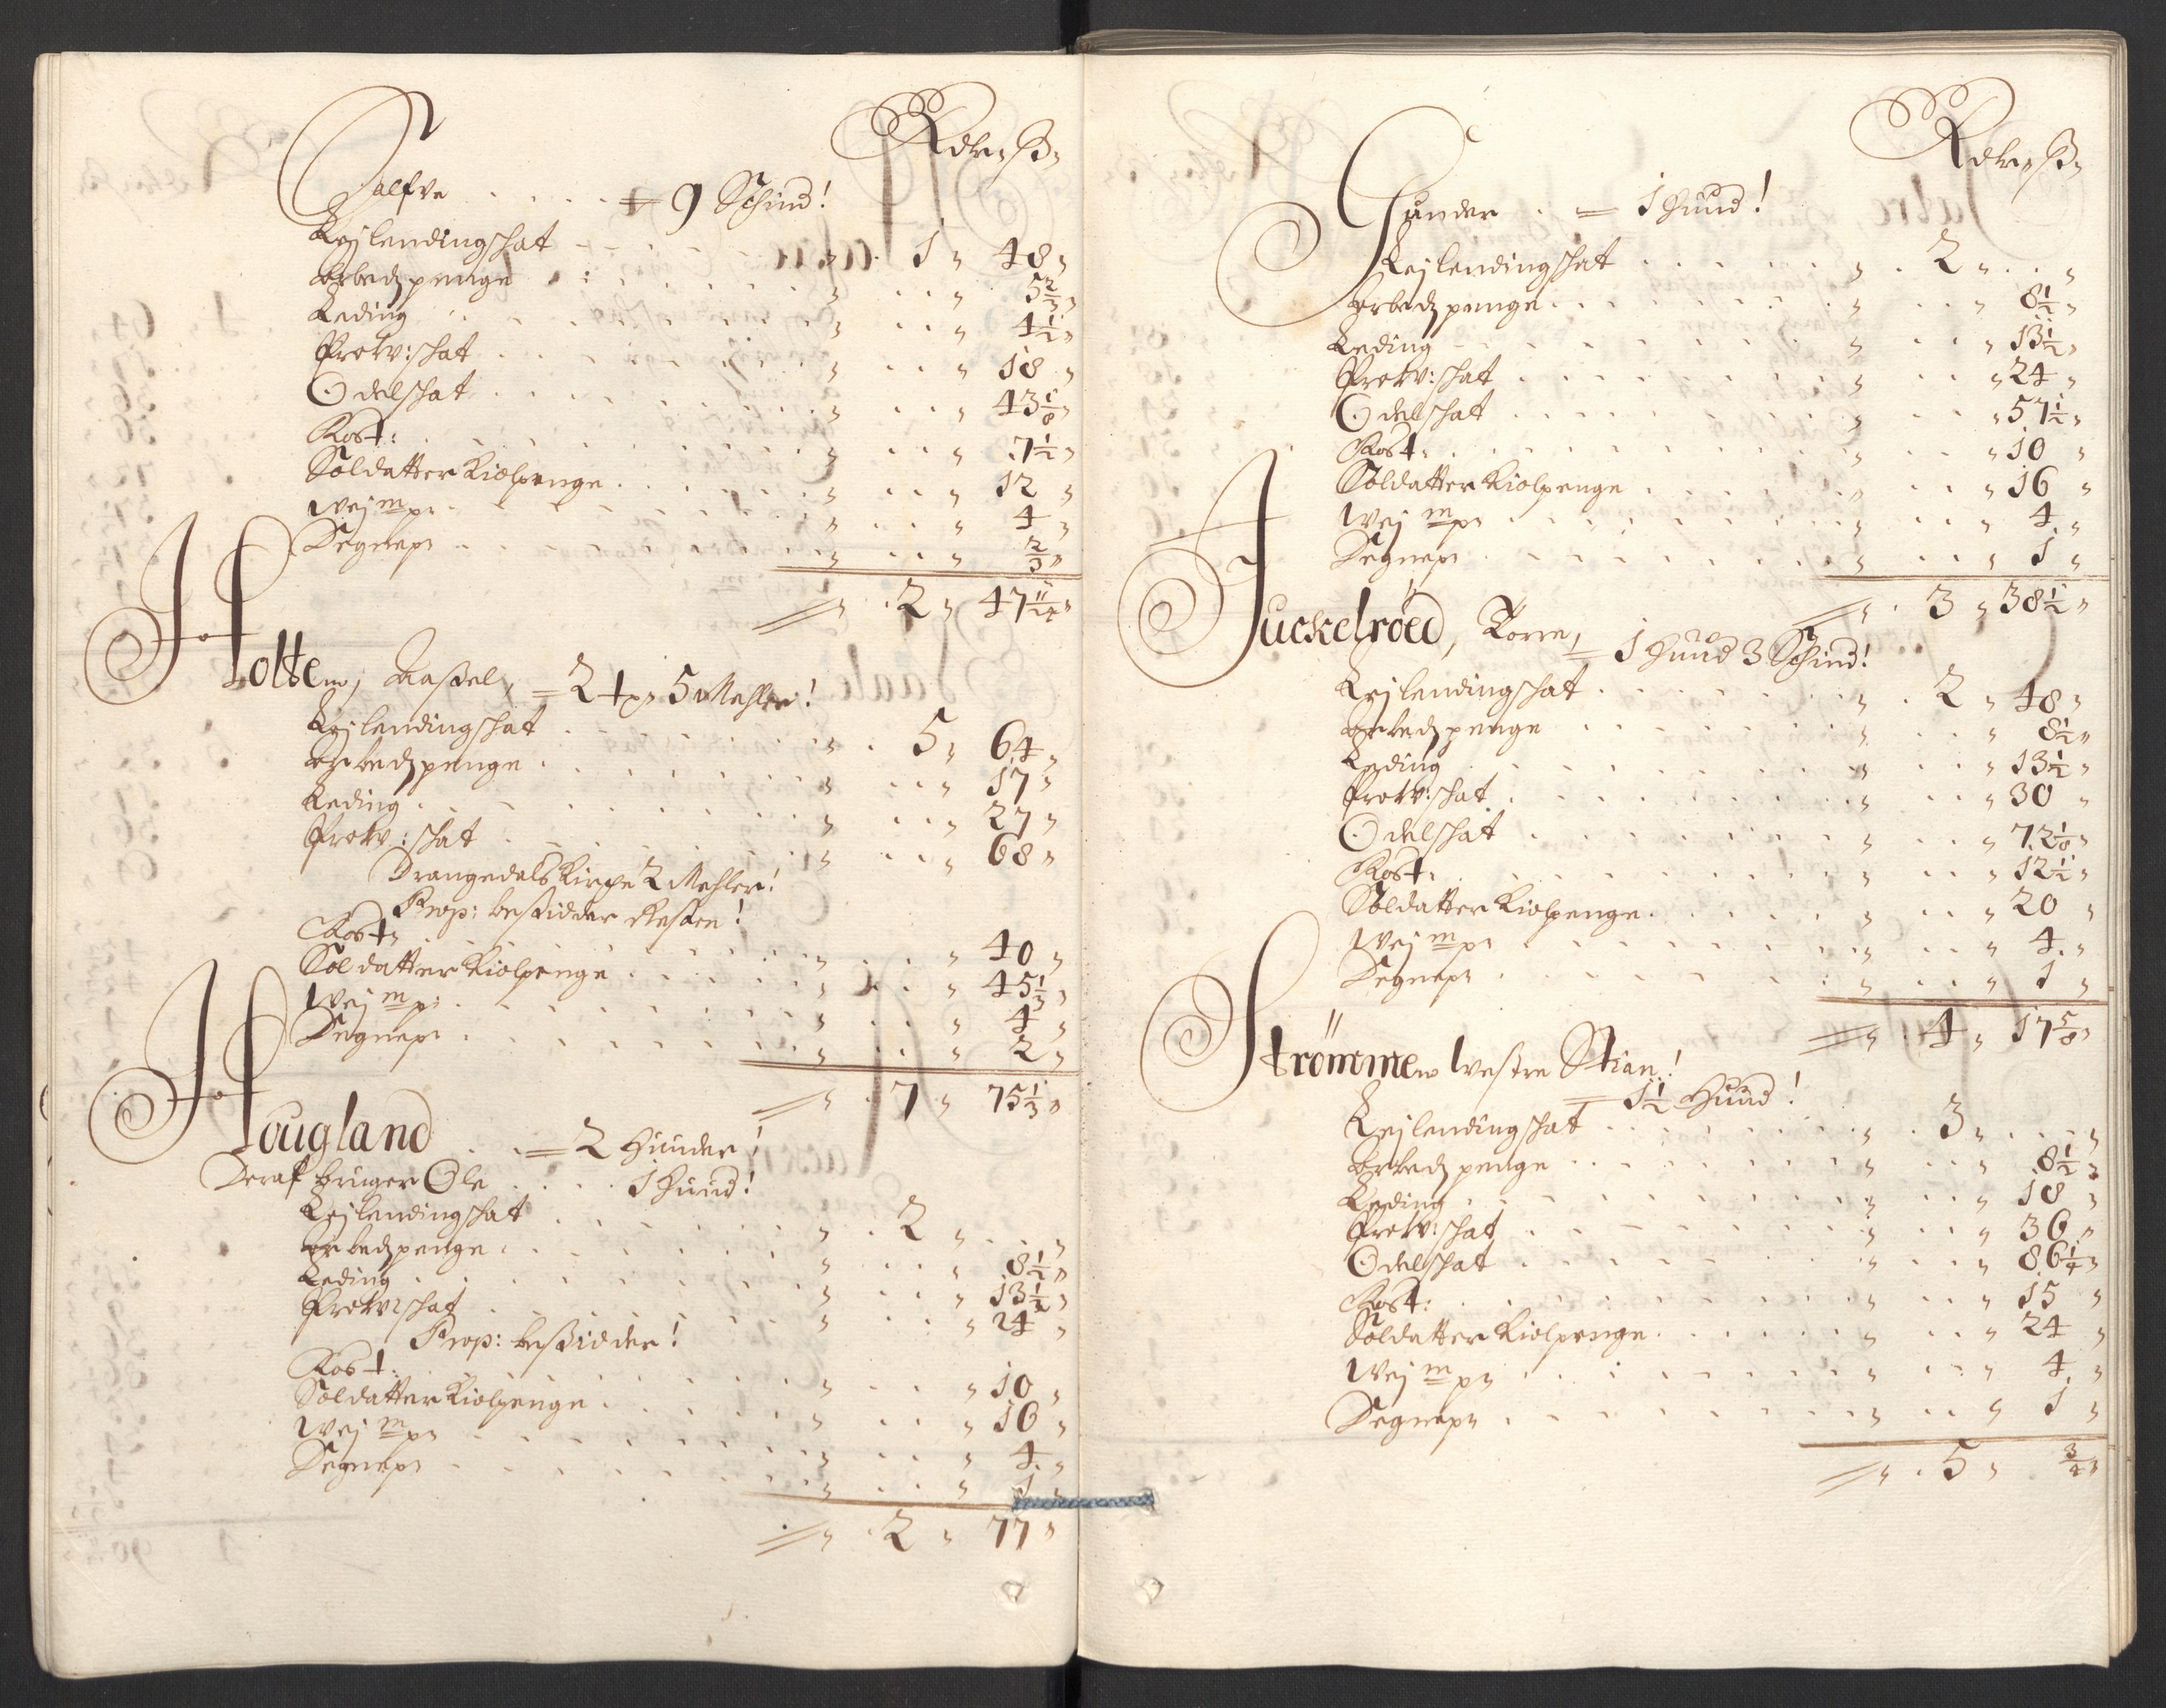 Rdr ß
Halfve = 9 Schind!
Leylendingschat 1 48
Arbedzpenge 5 2/3
Leding 4 1/2
Prow: schat 18
Odelschat 43 1/8
Rost: 7 1/2
Soldatter Kiolpenge 12
Wej mp 4
Degnep 2/3
2 47 11/24
Holten, Aassel, = 2 tp 5 Mehler!
Leylendingschat 5 64
Arbedzpenge 17
Leding 27
Prow: schat 68
Drangedals Kirche 2 Mehler!
Prop: besidder Resten!
Rost 40
Soldatter Kiolpenge 45 1/3
Wej mp: 4
Degnep 2
7 75 1/3
Hougland = 2 Hunder!
Deraf bruger Ole 1 Hund!
Leylendingschat 2
Arbedzpenge 8 1/2
Leding 13 1/2
Prow: schat 24
Prop: besidder!
Rost: 10
Soldatter Kiolpenge 16
Wej mp 4
Degnep 1
2 77
Rdr ß
Gunder = 1 Hund!
Leylendingschat 2
Arbedzpenge 8 1/2
Leding 13 1/2
Prow: schat 24
Odelschat 57 1/2
Rost 10
Soldatter Kiolpenge 16
Wej mp 4
Degnep 1
3 38 1/2
Juckelröed, Torre, = 1 Hund 3 Schind!
Leylendingschat 2 48
Arbedzpenge 8 1/2
Leding 13 1/2
Prow: schat 30
Odelschat 72 1/8
Rost 12 1/2
Soldatter Kiolpenge 20
Wej mp 4
Degnep 1
4 17 5/8
Strömmen westre Stian!
= 1 1/2 Hund!
Leylendingschat 3
Arbedzpenge 8 1/2
Leding 18
Prow: schat 36
Odelschat 86 1/4
Rost: 15
Soldatter Kiolpenge 24
Wej mp 4
Degnep 1
5 3/4